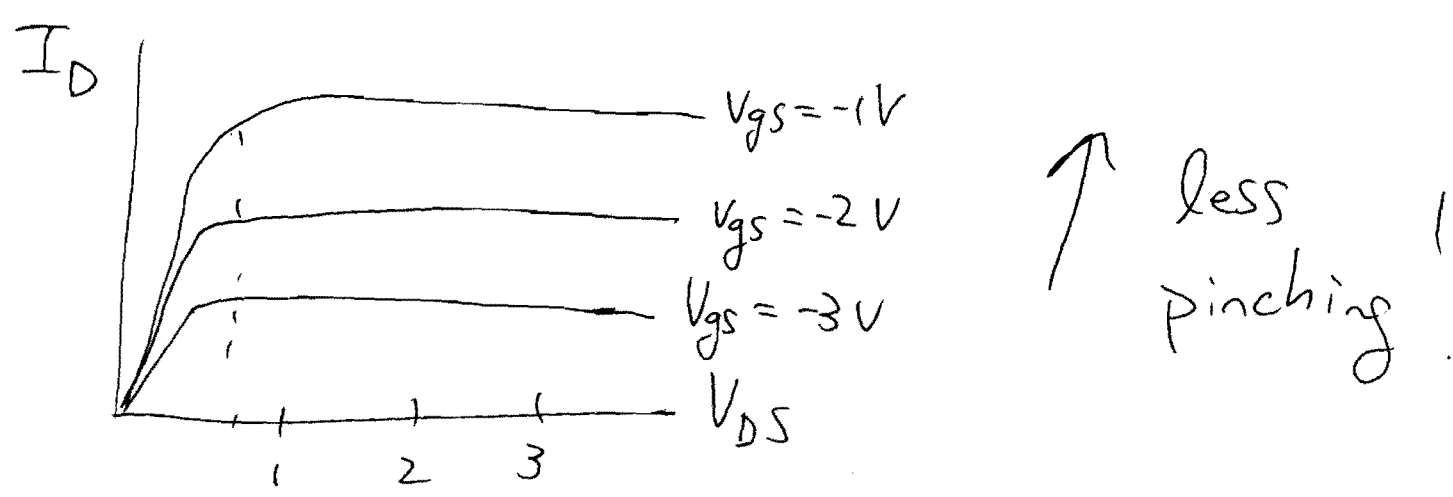 I_D
Vgs = -1V
Vgs = -2V
Vgs = -3V
V_DS
1 2 3
less
pinching !